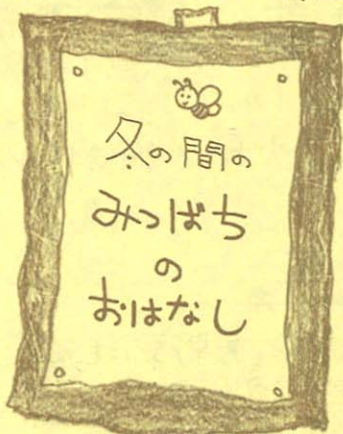 冬の間の
みつばち
の
おはなし